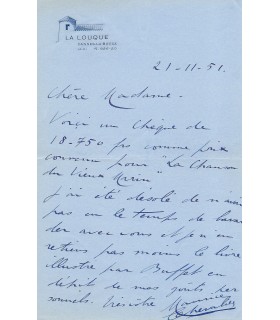 LA LOUQUE
21-11-51.
Chère Madame -
Voiçi un chèque de
18-750 frs comme prix
convenu pour "La Chanson
du Vieux Marin"
J'ai été désolé de n'avoir
pas eu le temps de bavar
der avec vous et je n'en
retiens pas moins le livre
illustré par Buffet en
dépit de mes goûts per
sonnels.
Maurice
Chevalier